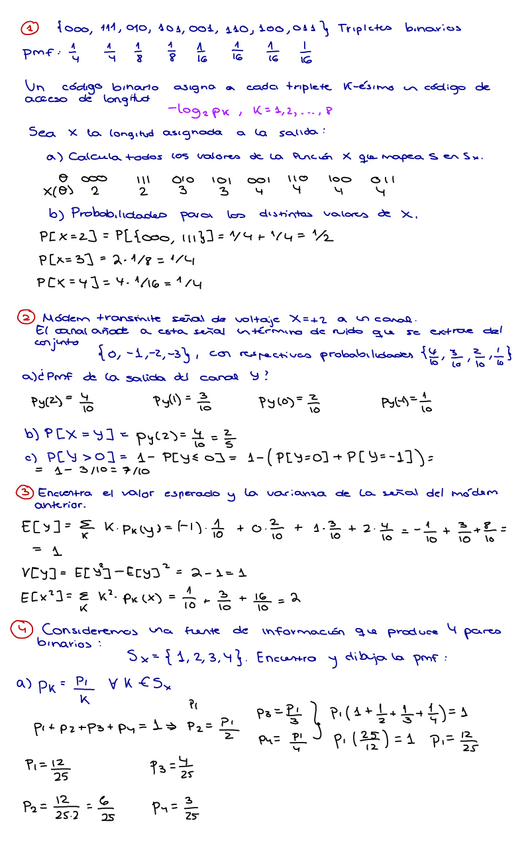 ① {000, 111, 010, 101, 001, 110, 100, 011} Tripletes binarios
pmf: 1/4 1/4 1/8 1/8 1/16 1/16 1/16 1/16
Un código binario asigna a cada triplete K-ésimo un código de
acceso de longitud
-log₂ pk, K=1,2,...,8
Sea X la longitud asignada a la salida:
a) Calcula todos los valores de la función X que mapea S en Sx.
θ 000 111 010 101 001 110 100 011
X(θ) 2 2 3 3 4 4 4 4
b) Probabilidades para los distintos valores de X.
P[X=2] = P[{000, 111}] = 1/4 + 1/4 = 1/2
P[X=3] = 2·1/8 = 1/4
P[X=4] = 4·1/16 = 1/4
② Módem transmite señal de voltaje X=+2 a un canal.
El canal añade a esta señal un término de ruido que se extrae del
conjunto
{0, -1, -2, -3}, con respectivas probabilidades {4/10, 3/10, 2/10, 1/10}
a) ¿Pmf de la salida del canal Y?
Py(2) = 4/10 Py(1) = 3/10 Py(0) = 2/10 Py(-1) = 1/10
b) P[X=Y] = Py(2) = 4/10 = 2/5
c) P[Y>0] = 1 - P[Y≤0] = 1 - (P[Y=0] + P[Y=-1]) =
= 1 - 3/10 = 7/10
③ Encuentra el valor esperado y la varianza de la señal del módem
anterior.
E[Y] = Σ K·Pk(Y) = (-1)·1/10 + 0·2/10 + 1·3/10 + 2·4/10 = -1/10 + 3/10 + 8/10 =
K
= 1
V[Y] = E[Y²] - E[Y]² = 2-1 = 1
E[X²] = Σ K²·Pk(X) = 1/10 + 3/10 + 16/10 = 2
K
④ Consideremos una fuente de información que produce 4 pares
binarios:
Sx = {1,2,3,4}. Encuentra y dibuja la pmf:
a) Pk = P1/K ∀ K ∈ Sx
P1
P1 + P2 + P3 + P4 = 1 ⇒ P2 = P1/2 P3 = P1/3 } P1(1 + 1/2 + 1/3 + 1/4) = 1
P4 = P1/4 P1(25/12) = 1 P1 = 12/25
P1 = 12/25 P3 = 4/25
P2 = 12/25·2 = 6/25 P4 = 3/25